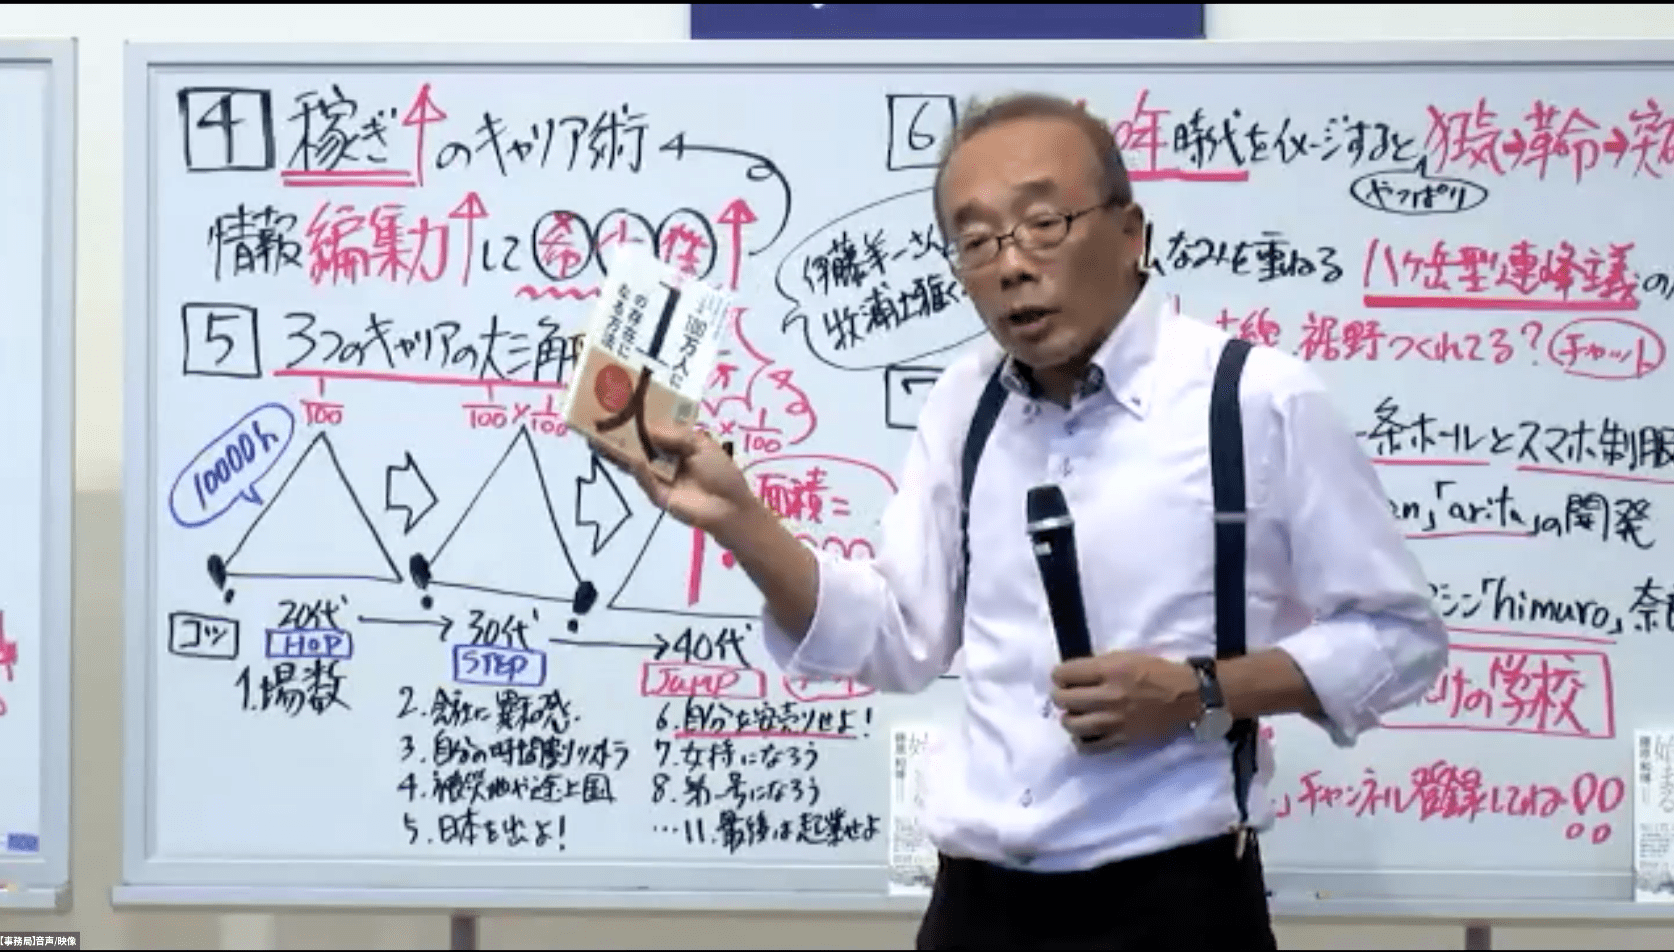 4 稼ぎ↑のキャリア術
情報編集力↑して希少性↑
5 3つのキャリアの大三角
1/100
1/100×1/100
×1/100
10000h
面積=
コツ
20代 → 30代 → 40代
HOP
STEP
JUMP
1.場数
2.会社に
3.自分の時間割
4.被災地や途上国
5.日本を出よ!
6.自分を安売りせよ!
7.女持になろう
8.第一号になろう
…11.最後は起業せよ
100万人に
1
の存在に
なる方法
6
年時代をイメージすると
狂気→革命→突
やっぱり
伊藤羊一さん
牧浦土雅く
なみを重ねる
八ヶ岳型連峰主義の
裾野つくれてる?
チャット
7
条ホールとスマホ制服
「arita」の開発
「himuro」奈
けの学校
」チャンネル登録してね!!
藤原和博
【事務局】音声/映像